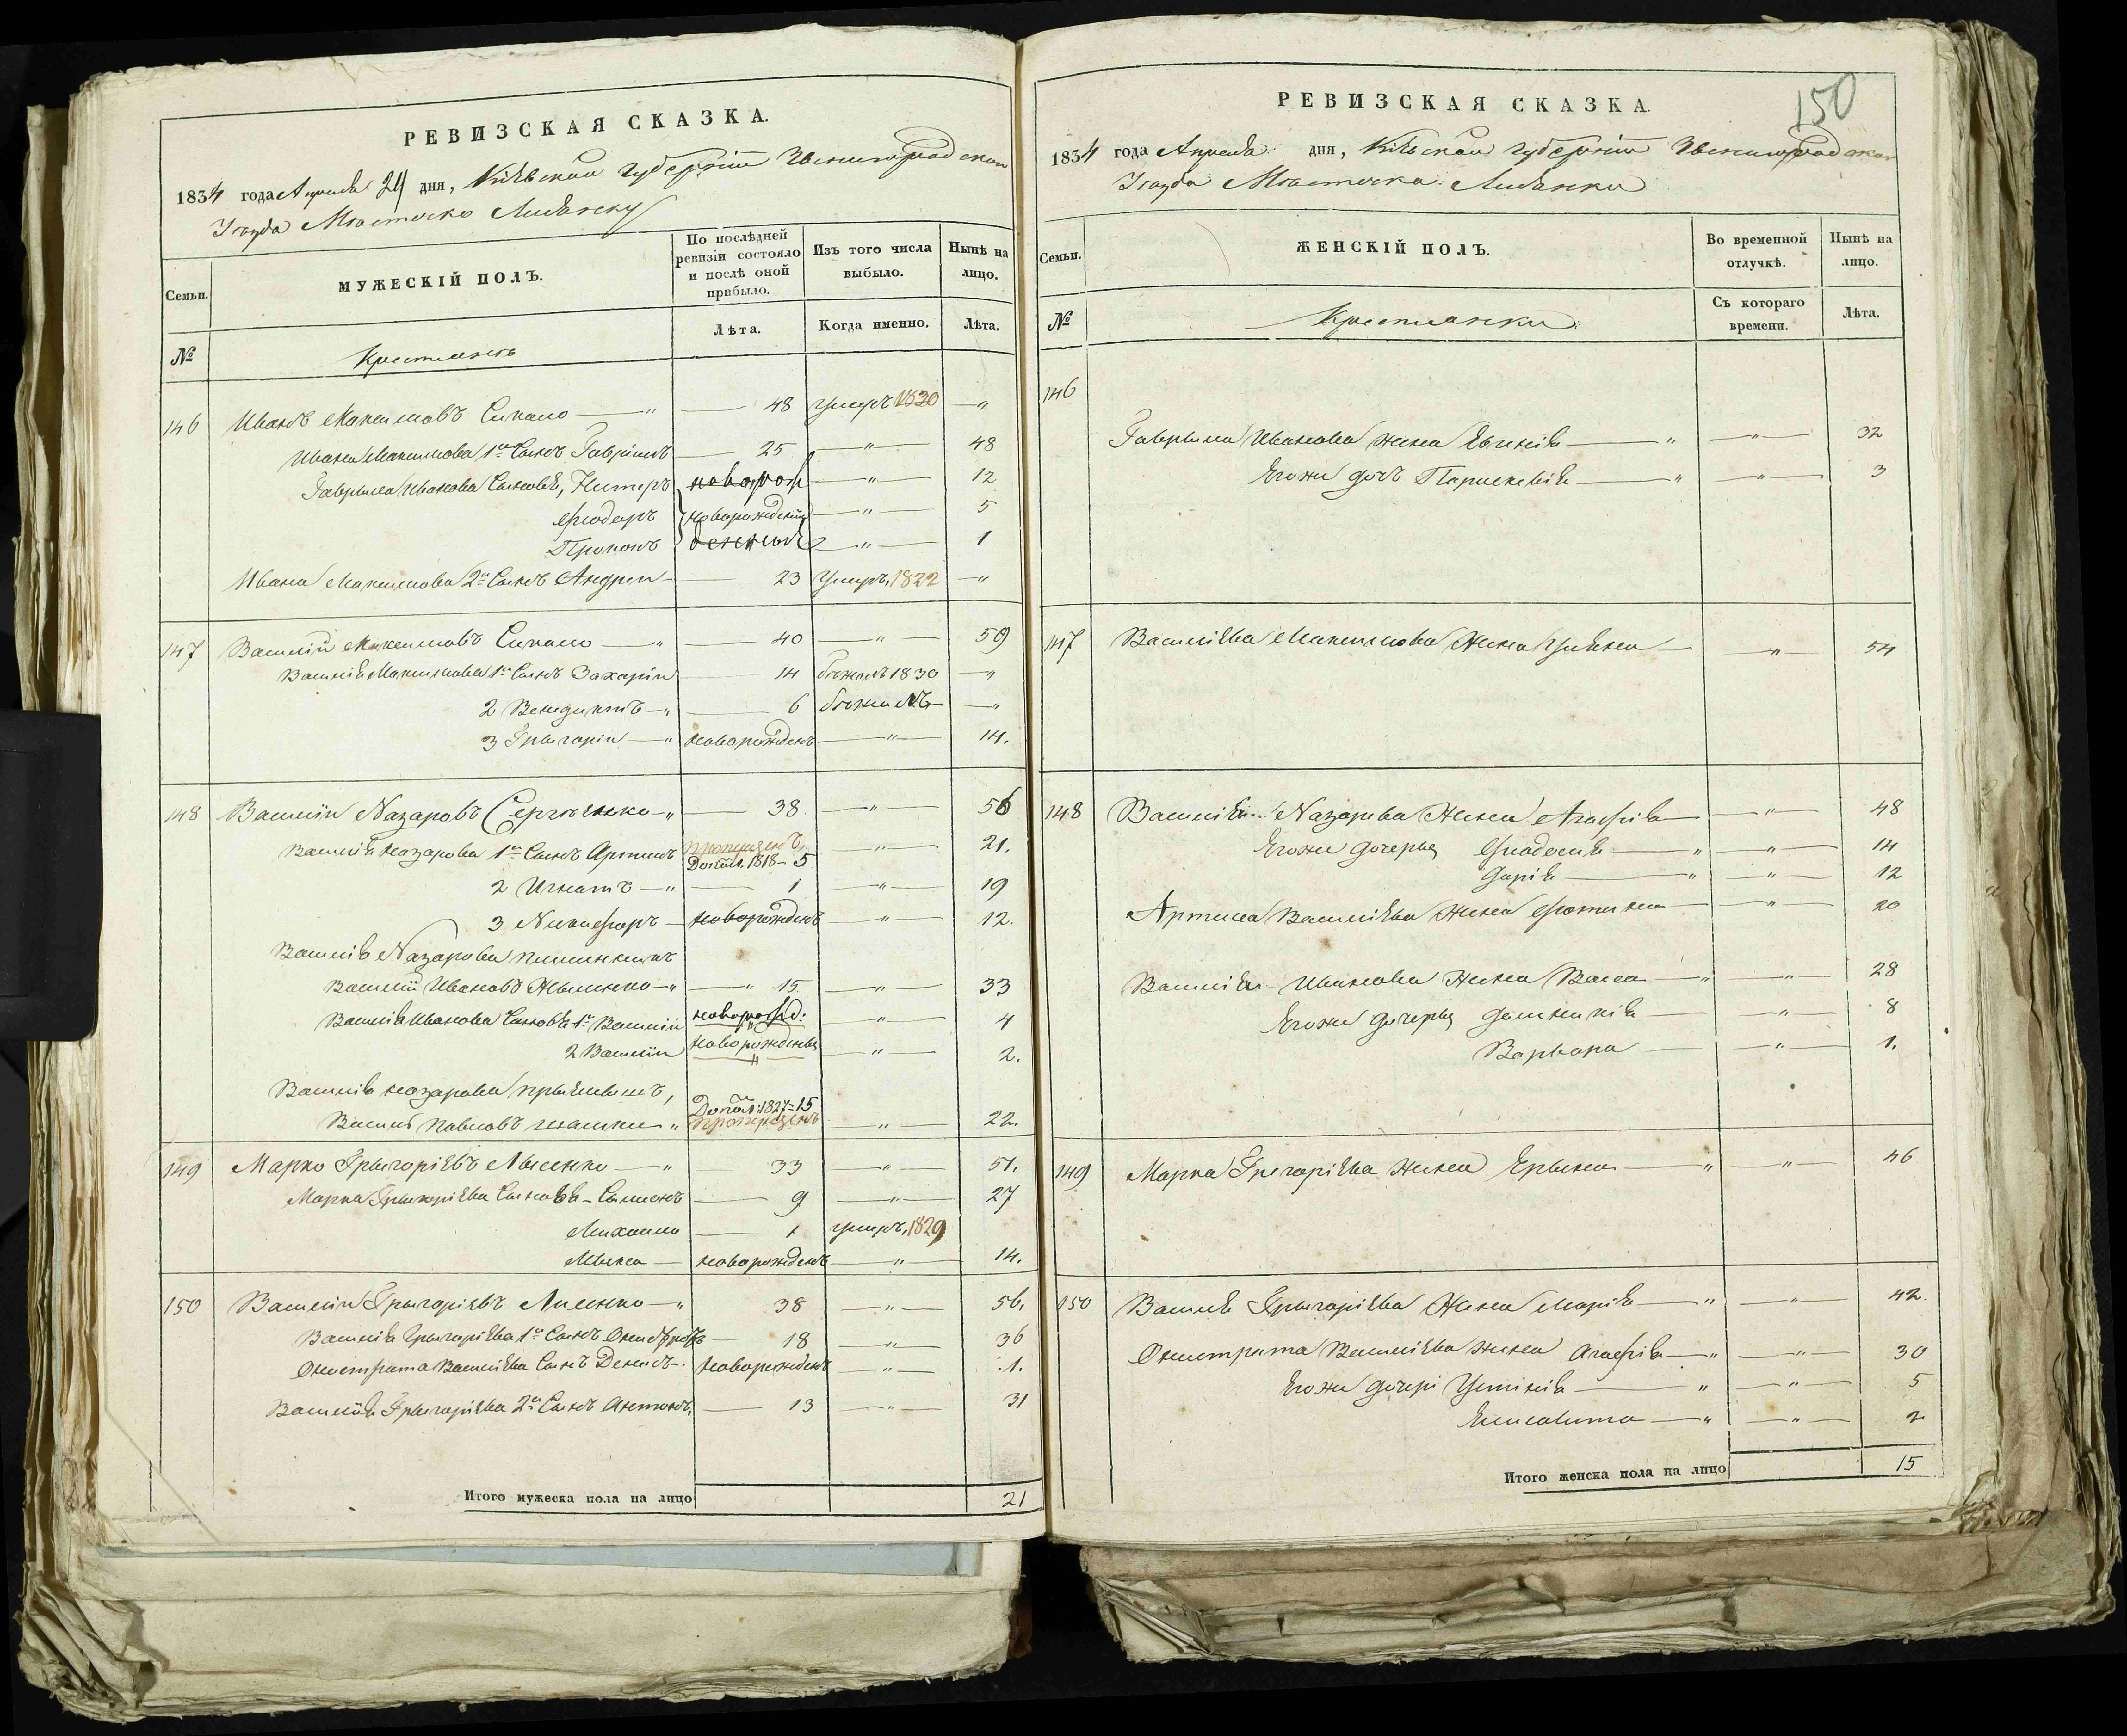 РЕВИЗСКАЯ СКАЗКА.
1834 года Апреля 24 дня, Кіѣвской губерніи Звенигородской
Уезда Мѣстечко Лисянку
Семьи.
МУЖЕСКІЙ ПОЛЪ.
По послѣдней ревизіи состояло и послѣ оной прибыло.
Изъ того числа выбыло.
Нынѣ на лицо.
№
Крестьянъ
Лѣта.
Когда именно.
Лѣта.
146 Иванъ Максимовъ Сикало — " — 48 умеръ 1830 — "
Ивана Максимова 1й Сынъ Гаврилъ — 25 — " — 48
Гаврыла Иванова Сыновья, новорож — " — 12
Фиодоръ новорожденіи — " — 5
Прокопъ — " — 1
Ивана Максимова 2й Сынъ Андреи — 23 умеръ, 1822 — "
147 Василіи Максимовъ Сикало — " — 40 — " — 59
Василія Максимова 1й Сынъ Захаріи — 14 бѣжалъ 1830 — "
2 Венедиктъ — " — 6 — "
3 Грыгоріи — " новорожденъ — " — 14.
148 Василіи Назаровъ Сергѣенко — " — 38 — " — 56
Василія Назарова 1й Сынъ Артемъ пропущенъ, — " — 21.
1818 — 5
2 Игнатъ — " — 1 — " — 19
3 Никифоръ — новорожденъ — " — 12.
Василія Назарова
Василіи Ивановъ — " — " 15 — " — 33
Василія Иванова Сыновья 1й Василіи новорожд: — " — 4
2 Василіи новорожденъ — " — 2.
Василія Назарова
Василь Павловъ " 1827 = 15 — " — 22.
пропущенъ
149 Марко Грыгоріевъ Лысенко — " 33 — " — 51.
Марка Грыгоріева Сыновья — Симионъ — 9 — " — 27
Михаило — 1 умеръ, 1829
— новорожденъ — " — 14.
150 Василіи Грыгоріевъ Лисенко — " 38 — " — 56.
Василія Грыгоріева 1й Сынъ — 18 — " — 36
Онистрата Василіева Сынъ Денисъ — новорожденъ — " — 1.
Василія Грыгоріева 2й Сынъ Антонъ, — 13 — " — 31
Итого мужеска пола на лицо 21
150
РЕВИЗСКАЯ СКАЗКА.
1834 года Апреля дня, Кіѣвской губерніи Звенигородской
Уезда Мѣстечка Лисянки
Семьи.
ЖЕНСКІЙ ПОЛЪ.
Во временной отлучкѣ.
Нынѣ на лицо.
№
Крестьянки
Съ котораго времени.
Лѣта.
146
Гаврыла Иванова жена Евгенія — " — " — 32
Егоже дочь Параскевія — " — " — 3
147 Василіева Максимова Жена — " — 54
148 Василія Назарова Жена Агафія — " — 48
Егоже дочеры Фиодосия — " — " — 14
Дарія — " — " — 12
Артема Василіева Жена — " — 20
Василія Иванова Жена Васса — " — " — 28
Егоже дочеры Доминикія — " — 8
Варвара — " — 1.
149 Марка Григоріева жена Ерына — " — " — 46
150 Василія Грыгоріева Жена Марія — " — " — 42.
Онистрата Василіева жена Агафія — " — " — 30
Егоже дочери Устинія — " — " — 5
Елисавита — " — " — 2
Итого женска пола на лицо 15